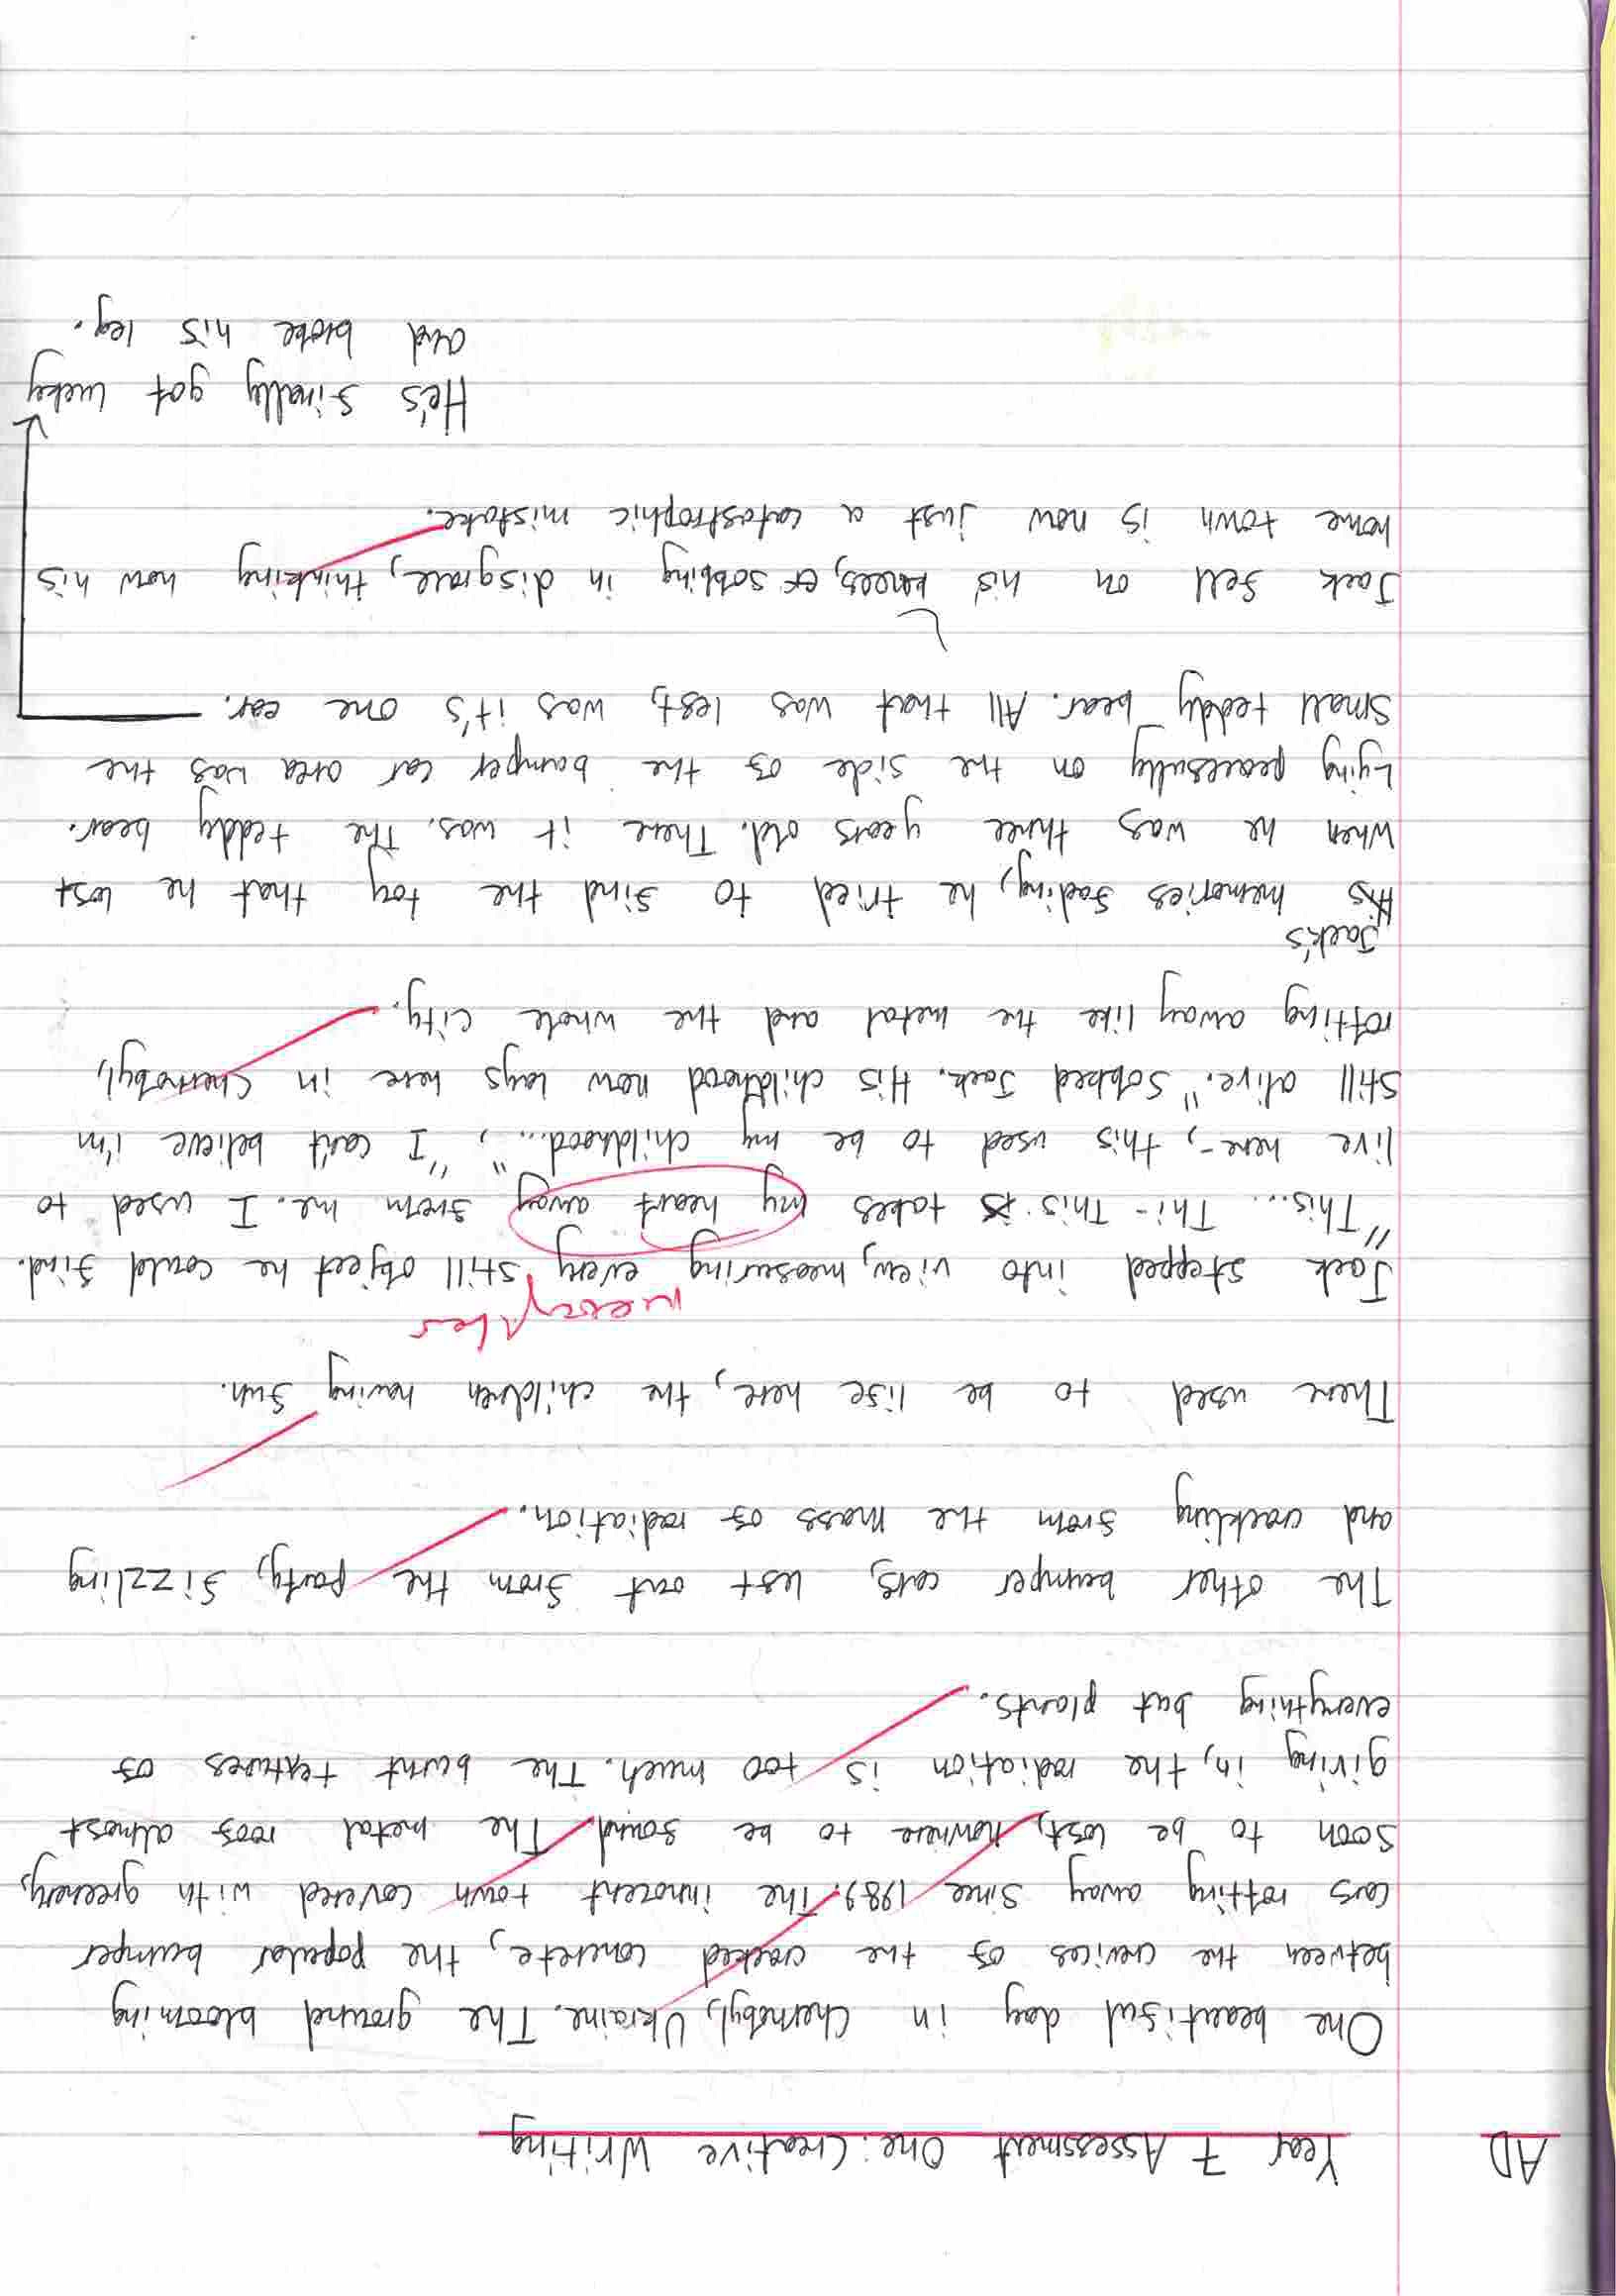 AD Year 7 Assessment One: Creative Writing
One beautiful day in Chernobyl, Ukraine. The ground blooming
between the crevices of the cracked concrete, the popular bumper
cars rotting away since 1989. The innocent town covered with greenery,
soon to be lost, nowhere to be found. The metal roof almost
giving in, the radiation is too much. The burnt textures of
everything but plants.
The other bumper cars, left out from the party, fizzling
and crackling from the mass of radiation.
There used to be life here, the children having fun.
Jack stepped into view, measuring every still object he could find.
"This... Thi- This is takes my heart away from me. I used to
live here-, this used to be my childhood...", "I can't believe i'm
still alive." Sobbed Jack. His childhood now lays here in Chernobyl,
rotting away like the metal and the whole city.
Jack's
His memories fading, he tried to find the toy that he lost
when he was three years old. There it was. The teddy bear.
Lying peacefully on the side of the bumper car area was the
small teddy bear. All that was left, was it's one ear.
Jack fell on his knees, sobbing in disgrace, thinking how his
home town is now just a catastrophic mistake.
He's finally got lucky
and broke his leg.